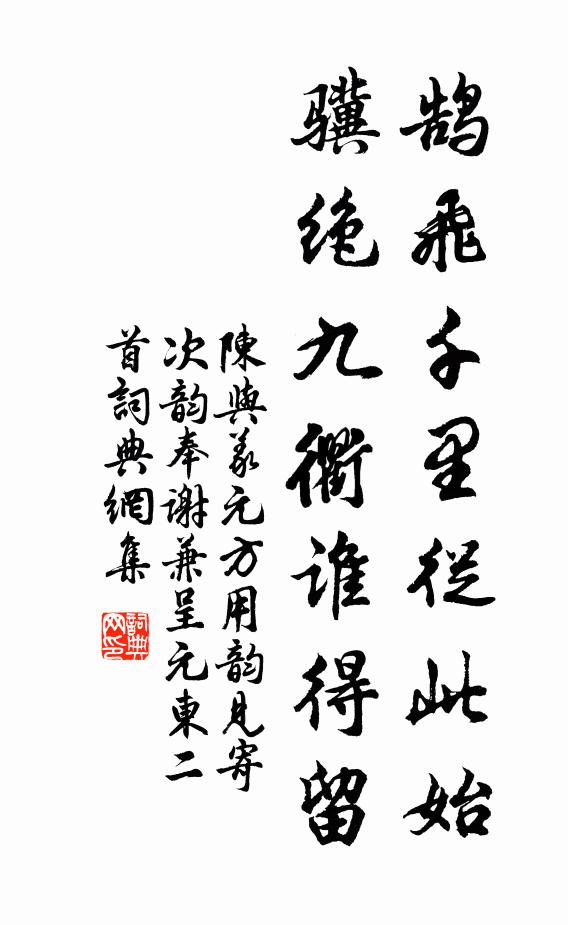 鹄飛千里從此始
骥绝九衢誰得留
陳與義元方用韵見寄
次韵奉谢兼呈元東二
首詞典網集
詞典
网印